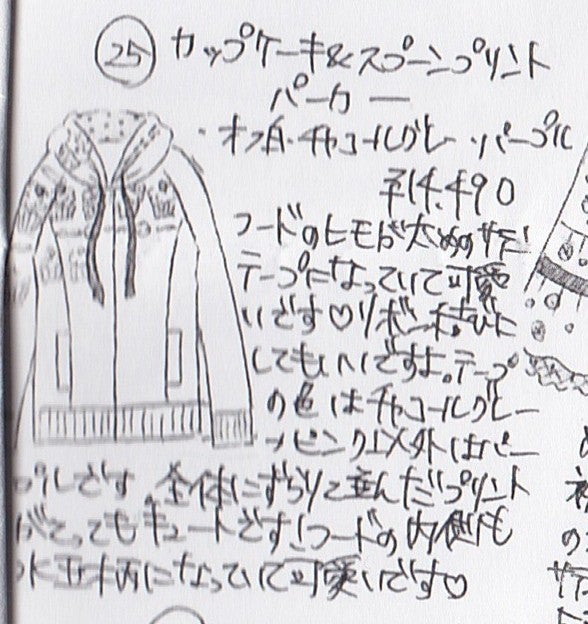 25 カップケーキ&スプーンプリント
パーカー
・オフ白・チャコールグレー・パープル
¥14.490
フードのヒモが太めのサテン
テープになっていて可愛
いです♡リボン結びに
してもいいですよ。テープ
の色はチャコールグレー
→ピンク以外はパー
プルです。全体にずらりと並んだプリント
がとってもキュートです!フードの内側も
水玉柄になっていて可愛いです♡